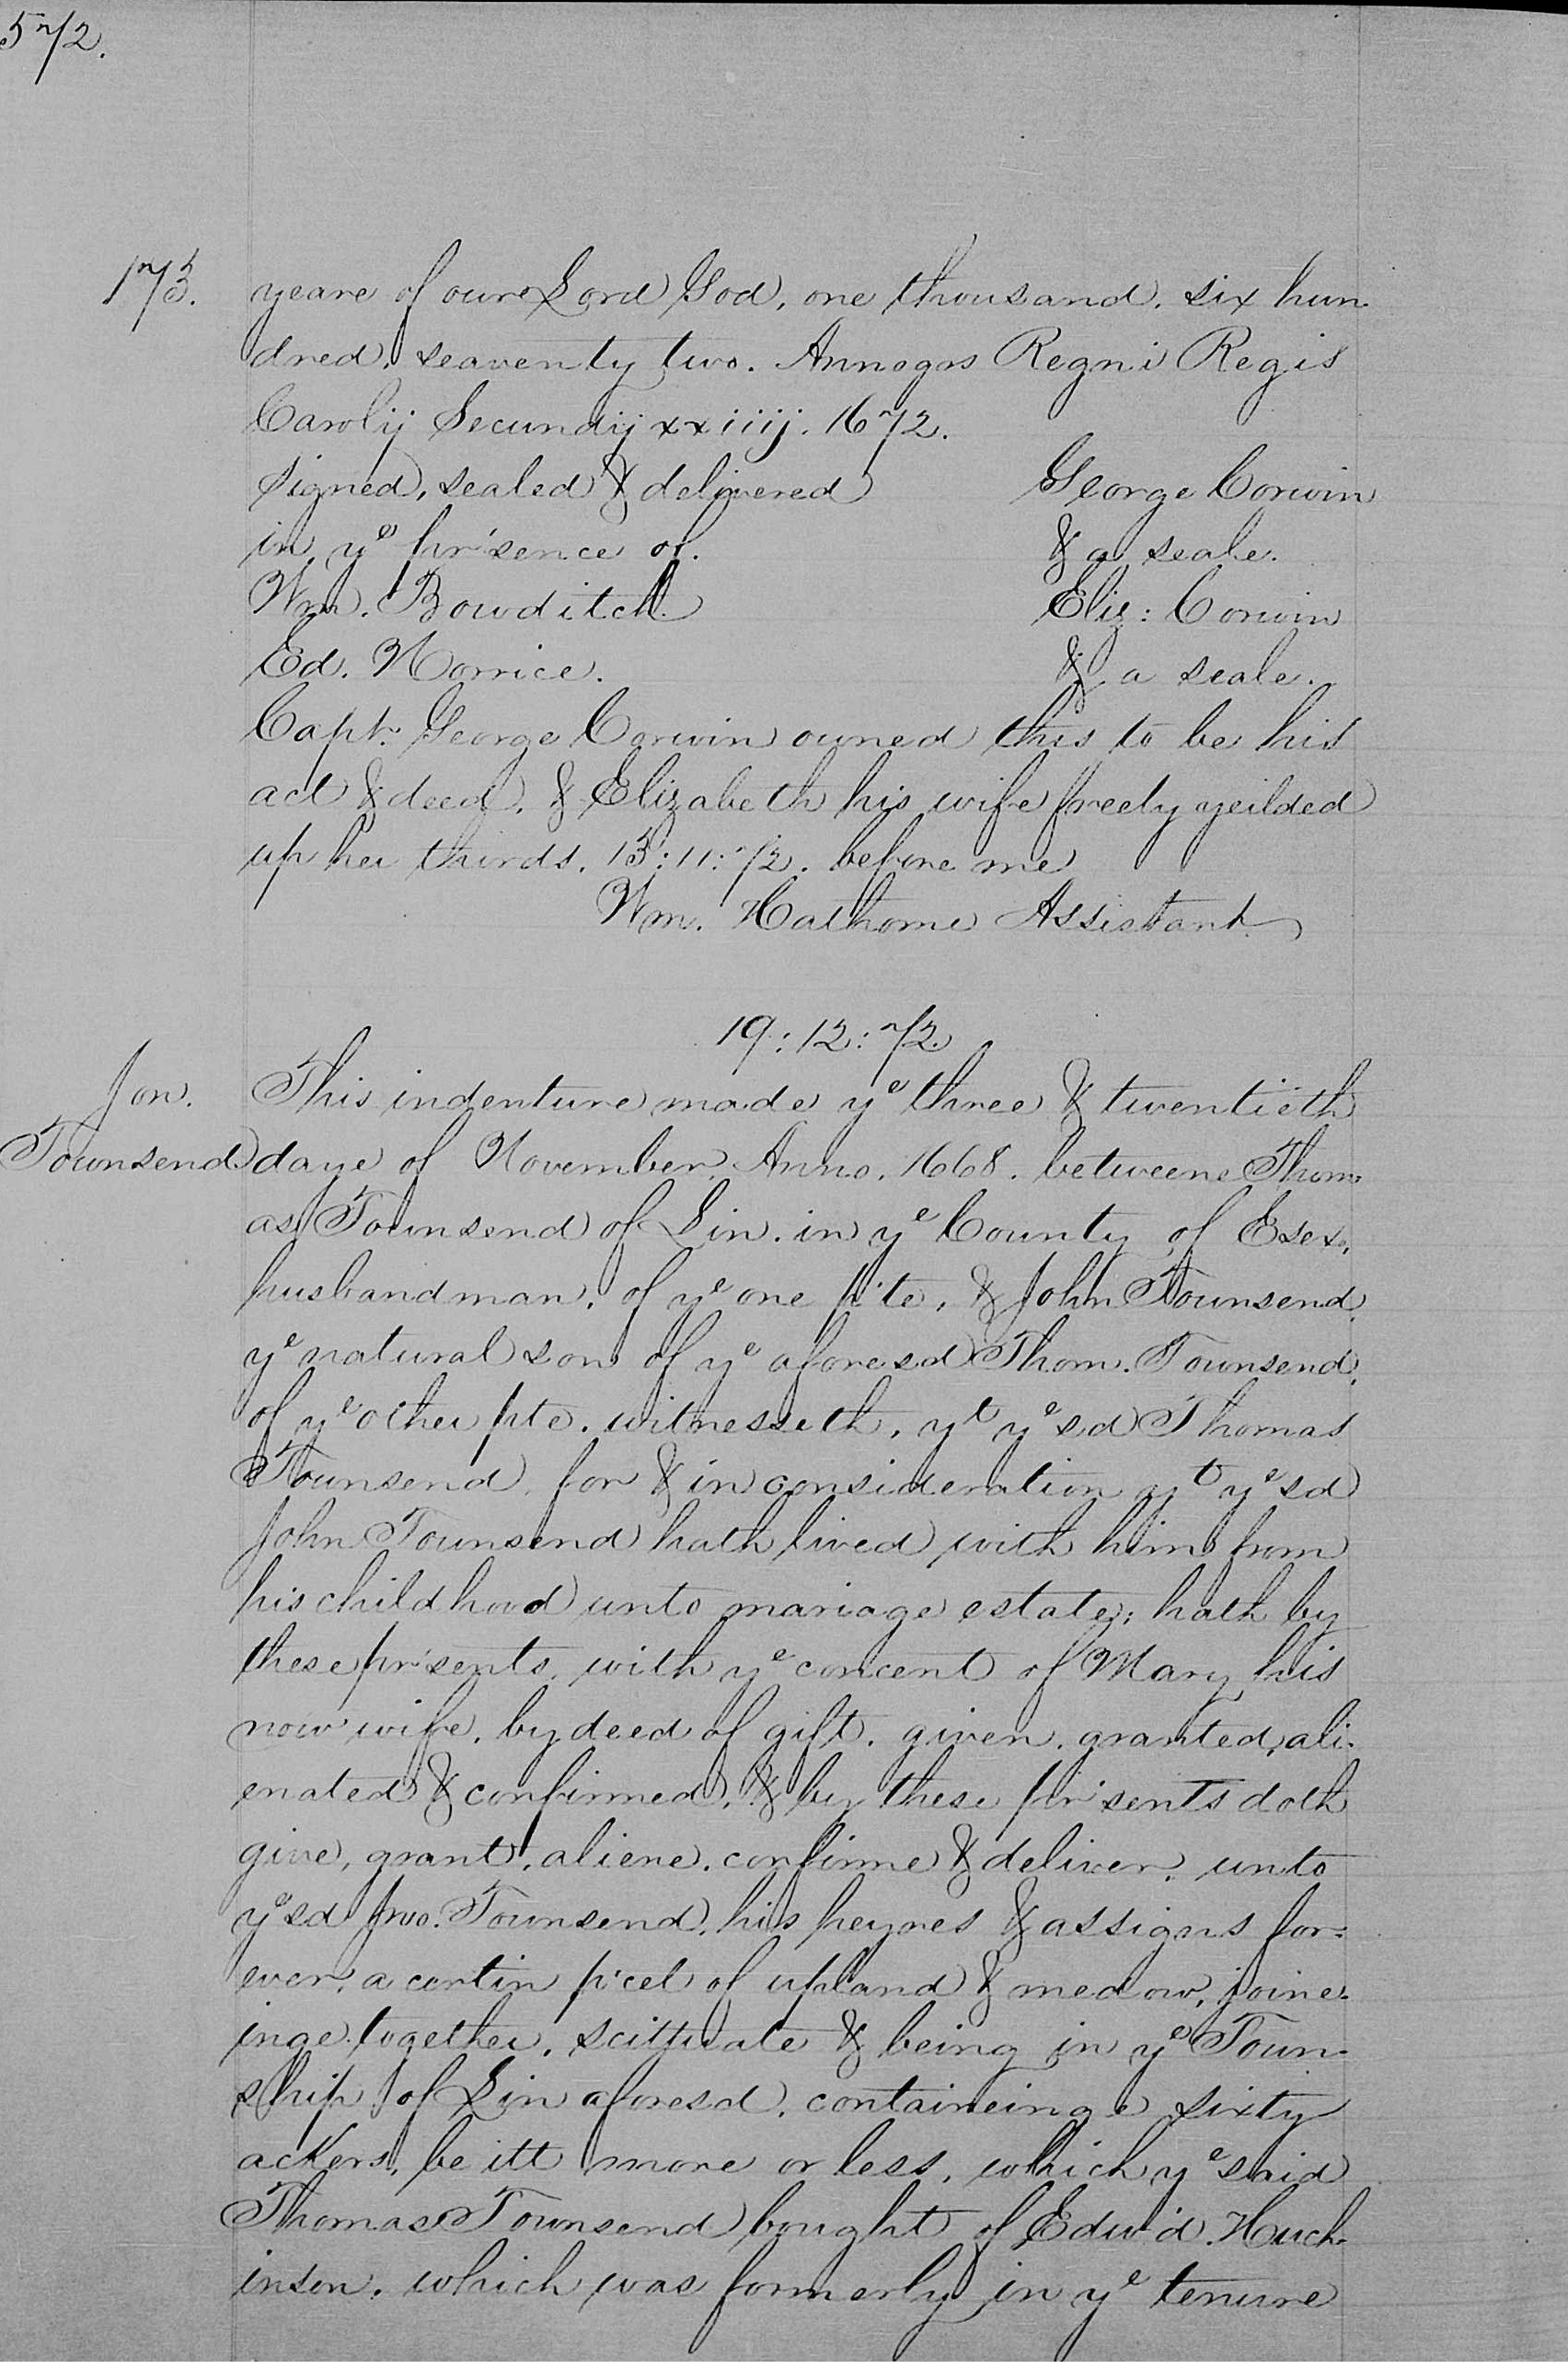 572.
173. yeare of oure Lord God, one thousand, six hun-
dred, seaventy two. Annoqos Regni Regis
Carolij Secundij xxiiij. 1672.
signed, sealed & delivered George Corwin
in yᵉ pr'sence of. & a seale.
Wm. Bowditch. Eliz: Corwin
Ed. Norrice. & a seale.
Capt. George Corwin owned this to be his
act & deed, & Elizabeth his wife freely yeilded
up her thirds. 13:11:72. before me
Wm. Hathorne Assistant
19:12:72.
Jon. This indenture made yᵉ three & twentieth
Townsend daye of November, Anno. 1668. betweene Thom-
as Townsend of Lin. in yᵉ County of Esex,
husbandman, of yᵉ one p'te, & John Townsend,
yᵉ natural son of yᵉ aforesd Thom. Townsend,
of yᵉ other pte. witnesseth, yᵗ yᵉ sd Thomas
Townsend, for & in consideration yᵗ yᵉ sd
John Townsend hath lived with him from
his childhood unto mariage estate; hath by
these pr'sents, with yᵉ concent of Mary his
now wife, by deed of gift, given, granted, ali-
enated & confirmed, & by these pr'sents doth
give, grant, aliene, confirme & deliver, unto
yᵉ sd Jno. Townsend, his heyres & assigns for-
ever, a certin p'cel of upland & medow, joine-
inge together, scittuate & being in yᵉ Town-
ship of Lin aforesd, containeinge sixty
ackers, be itt more or less, which yᵉ said
Thomas Townsend bought of Edw'd. Huch-
inson, which was formerly in yᵉ tenure